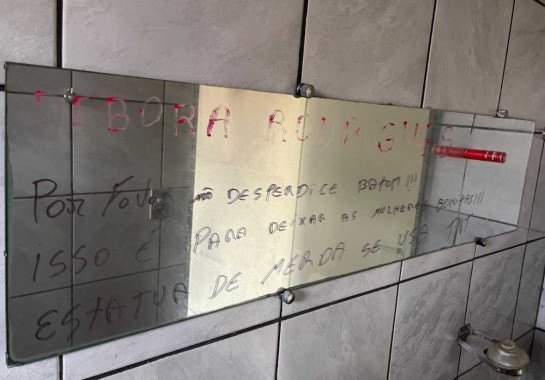 DEBORA RODRIGUES
POR FAVOR NÃO DESPERDICE BATOM !!!!
ISSO É PARA DEIXAR AS MULHERES BONITAS!!!
ESTATUA DE MERDA SE USA TNT